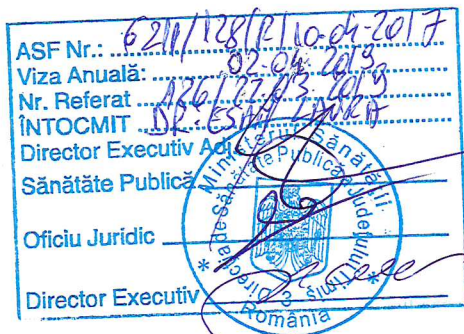 ASF Nr.: 6211/128/R/10-04-2017
Viza Anuală: 02-04-2019
Nr. Referat 126/27.03.2019
ÎNTOCMIT DR. LAURA
Director Executiv Adj.
Sănătăte Publică
Oficiu Juridic
Director Executiv
Ministerul Sănătății
Direcția de Sănătate Publică a Județului Timiș
România